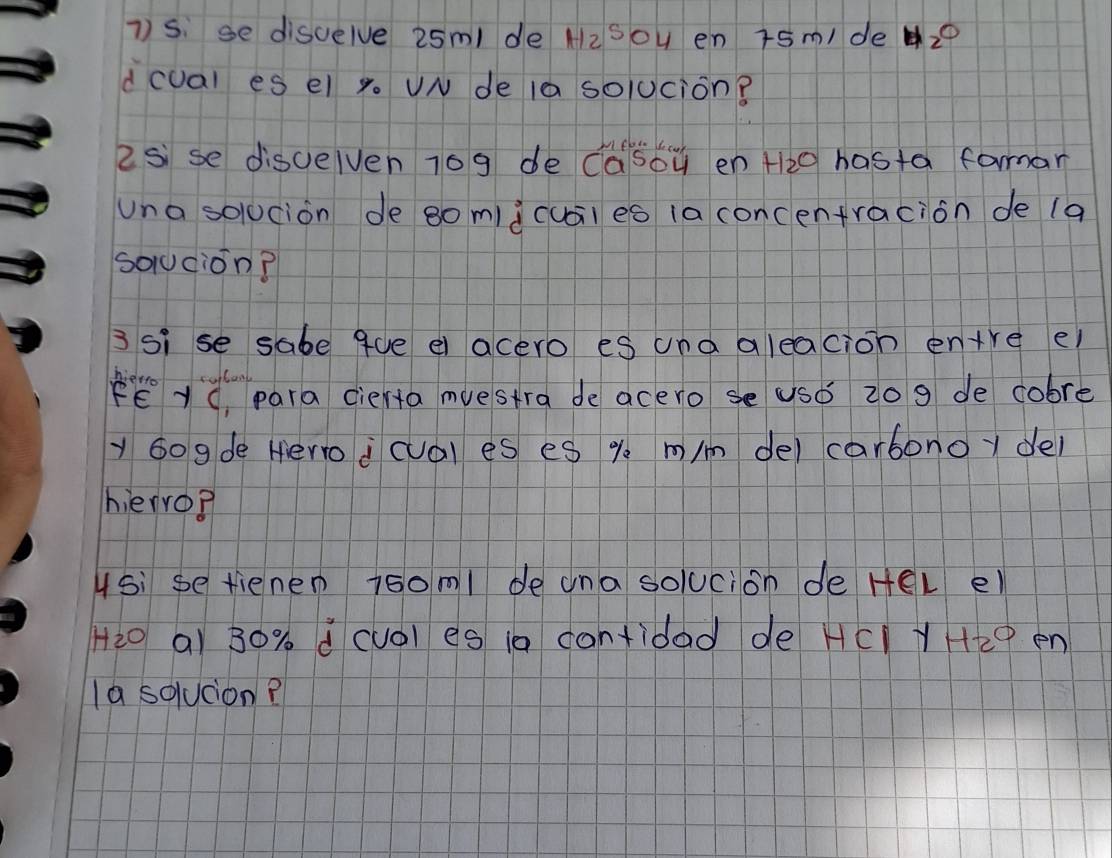 1) Si se disuelve 25ml de H2SO4 en 75ml de H2O
¿cual es el % V/V de la solución?
2 si se disuelven 10g de CaSO4 en H2O hasta formar
una solución de 80ml ¿cuál es la concentración de la
solución?
3 si se sabe que el acero es una aleación entre el
hierro carbono
FE y C, para cierta muestra de acero se usó 20g de cobre
y 60g de Hierro ¿cual es es % m/m del carbono y del
hierro?
4 si se tienen 150ml de una solución de HCL el
H2O al 30% ¿cual es la cantidad de HCl y H2O en
la solucion?